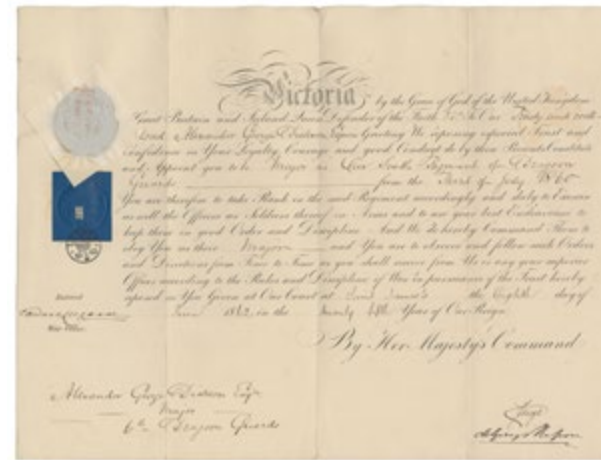 Victoria by the Grace of God of the United Kingdom of
Great Britain and Ireland Queen Defender of the Faith &c To Our Trusty and well
Alexander George Esqre Greeting We reposing especial Trust and
Confidence in Your Loyalty Courage and good Conduct do by these Presents Constitute
and Appoint you to be Major in Our Regiment of Dragoon
Guards from the day of July 1860
You are therefore to take Rank in the said Regiment accordingly and duly to Exercise
as well the Officers as Soldiers thereof in Arms and to use your best Endeavours to
keep them in good Order and Discipline And We do hereby Command Them to
obey You as their Major and You are to observe and follow such Orders
and Directions from Time to Time as you shall receive from Us or any your superior
Officer according to the Rules and Discipline of War in pursuance of the Trust hereby
reposed in You Given at Our Court at Saint James's the Eighth day of
186 in the Year of Our Reign
Entered
War Office
By Her Majesty's Command
Alexander George Esqre
Major
6th Dragoon Guards